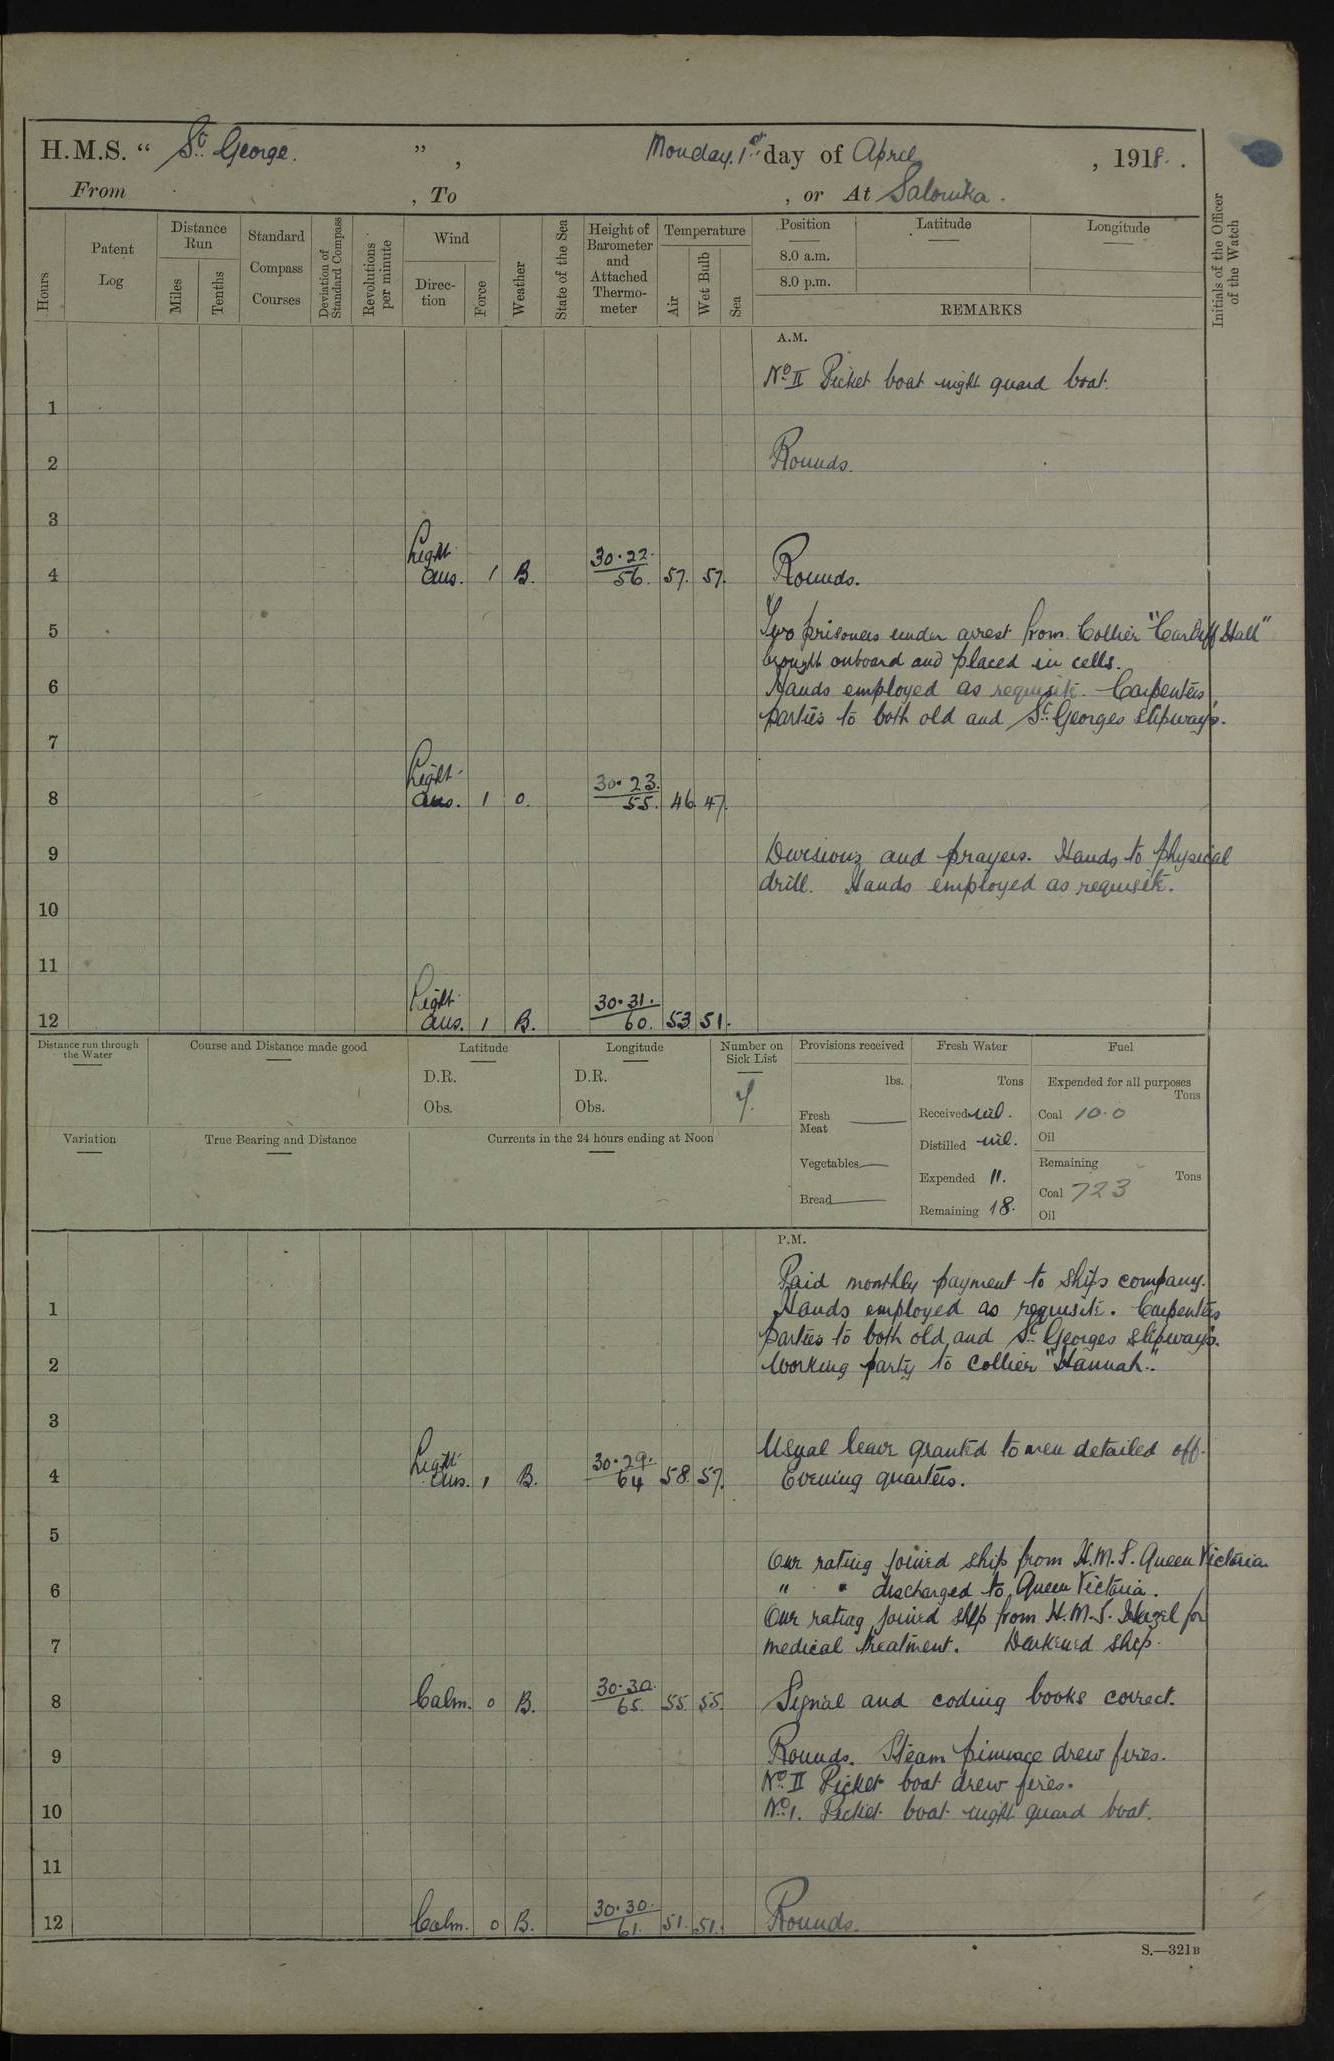 H.M.S. " St. George. ", Monday. 1st day of April, 1918.
From , To , or At Salonika.
Hours
Patent Log
Distance Run
Miles
Tenths
Standard Compass Courses
Deviation of Standard Compass
Revolutions per minute
Wind
Direction
Force
Weather
State of the Sea
Height of Barometer and Attached Thermometer
Temperature
Air
Wet Bulb
Sea
Position
Latitude
Longitude
8.0 a.m.
8.0 p.m.
REMARKS
Initials of the Officer of the Watch
A.M.
No. II Picket boat night guard boat.
1
2 Rounds.
3
4 Light airs. 1 B. 30.22. 56. 57. 57. Rounds.
5 Two prisoners under arrest from Collier "Cardiff Hall"
brought onboard and placed in cells.
6 Hands employed as requisite. Carpenters
parties to both old and St. Georges slipways.
7
8 Light airs. 1 o. 30.23. 55. 46. 47.
9 Divisions and prayers. Hands to physical
drill. Hands employed as requisite.
10
11
12 Light airs. 1 B. 30.31. 60. 53. 51.
Distance run through the Water
Course and Distance made good
Latitude
D.R.
Obs.
Longitude
D.R.
Obs.
Number on Sick List
7.
Provisions received
lbs.
Fresh Meat
Vegetables
Bread
Fresh Water
Tons
Received nil.
Distilled nil.
Expended 11.
Remaining 18.
Fuel
Expended for all purposes
Tons
Coal 10.0
Oil
Remaining
Tons
Coal 723
Oil
Variation
True Bearing and Distance
Currents in the 24 hours ending at Noon
P.M.
Paid monthly payment to ships company.
1 Hands employed as requisite. Carpenters
parties to both old and St. Georges slipways.
2 Working party to collier "Hannah".
3
Usual leave granted to men detailed off.
4 Light airs. 1 B. 30.29. 64 58. 57. Evening quarters.
5
One rating joined ship from H.M.S. Queen Victoria
6 " " discharged to Queen Victoria.
One rating joined ship from H.M.S. Hazel for
7 medical treatment. Darkened ship.
8 Calm. 0 B. 30.30. 65. 55. 55. Signal and coding books correct.
9 Rounds. Steam pinnace drew fires.
No. II Picket boat drew fires.
10 No. 1. Picket boat night guard boat.
11
12 Calm. 0 B. 30.30. 61. 51. 51. Rounds.
S.—321B